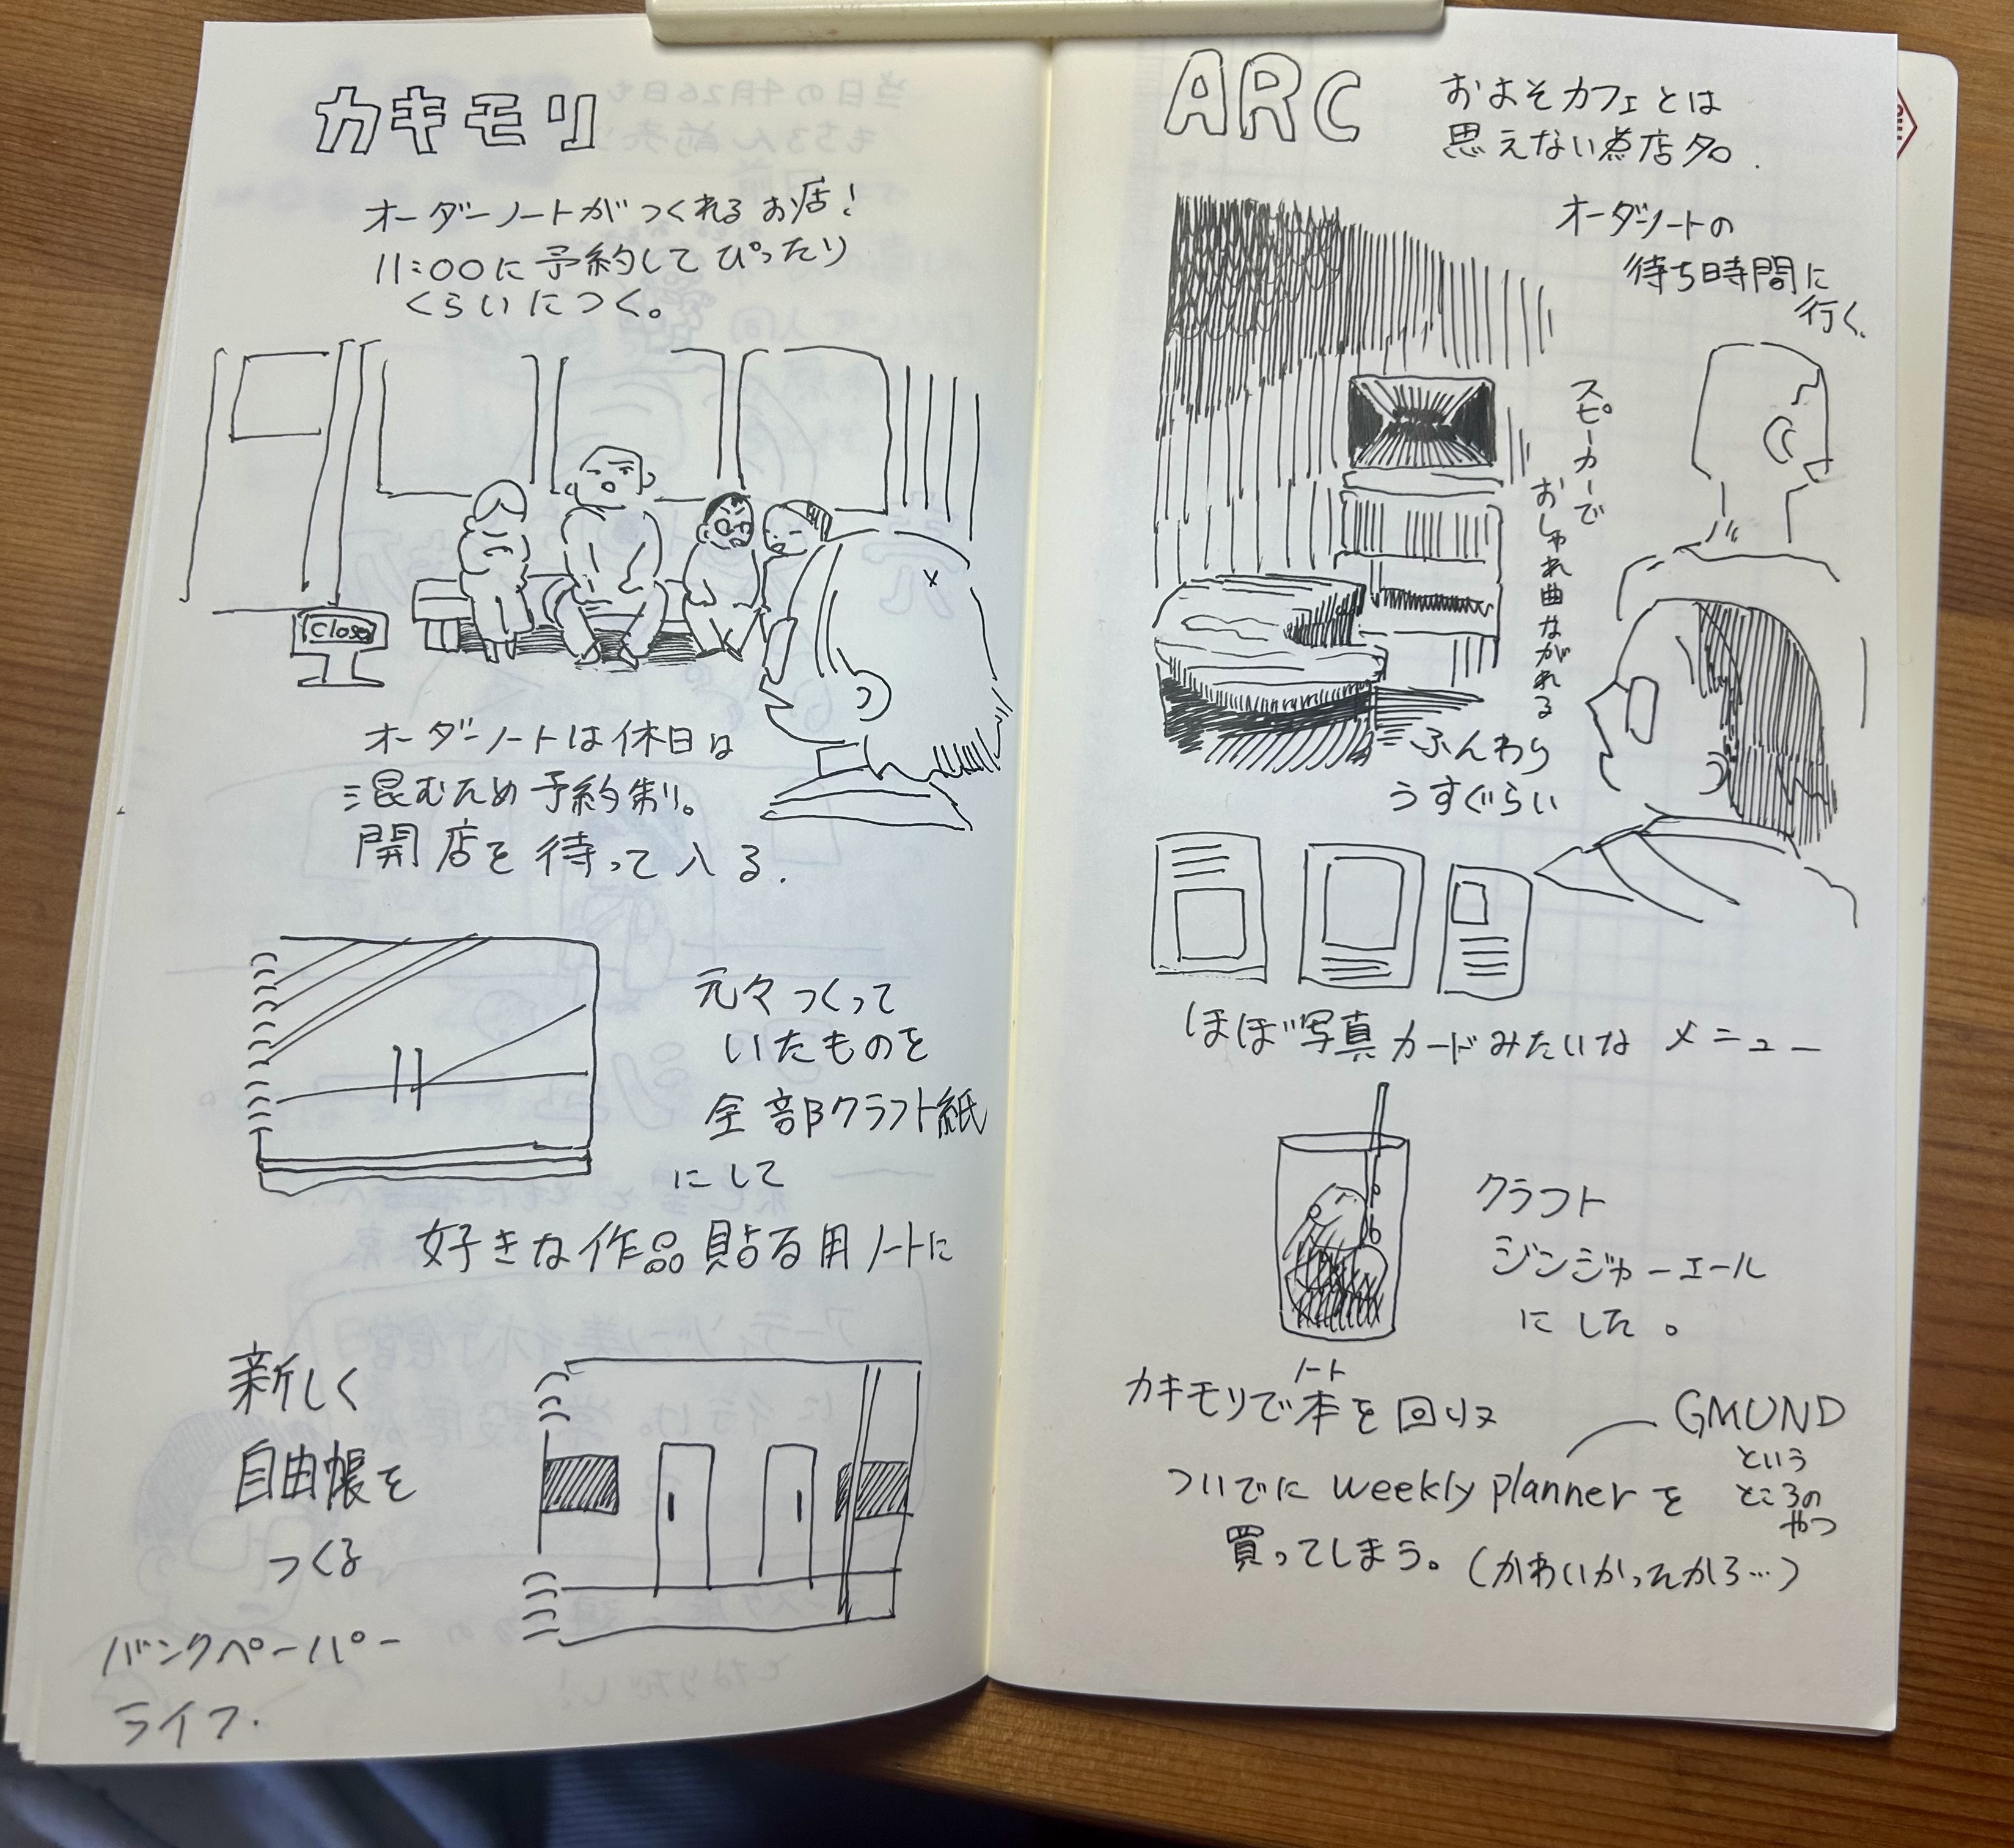 カキモリ
オーダーノートがつくれるお店!
11:00に予約してぴったり
くらいにつく。
Close
オーダーノートは休日は
混むため予約制。
開店を待って入る.
元々つくって
いたものを
全部クラフト紙
にして
好きな作品貼る用ノートに
新しく
自由帳を
つくる
バンクペーパー
ライフ.
ARC
およそカフェとは
思えない
オーダーノートの
待ち時間に
行く.
スピーカーで
おしゃれ曲ながれる
ふんわり
うすぐらい
ほぼ写真カードみたいな メニュー
クラフト
ジンジャーエール
にした。
ノート
カキモリで本を回収
GMUND
という
ところの
やつ
ついでに weekly planner を
買ってしまう。(かわいかったから…)